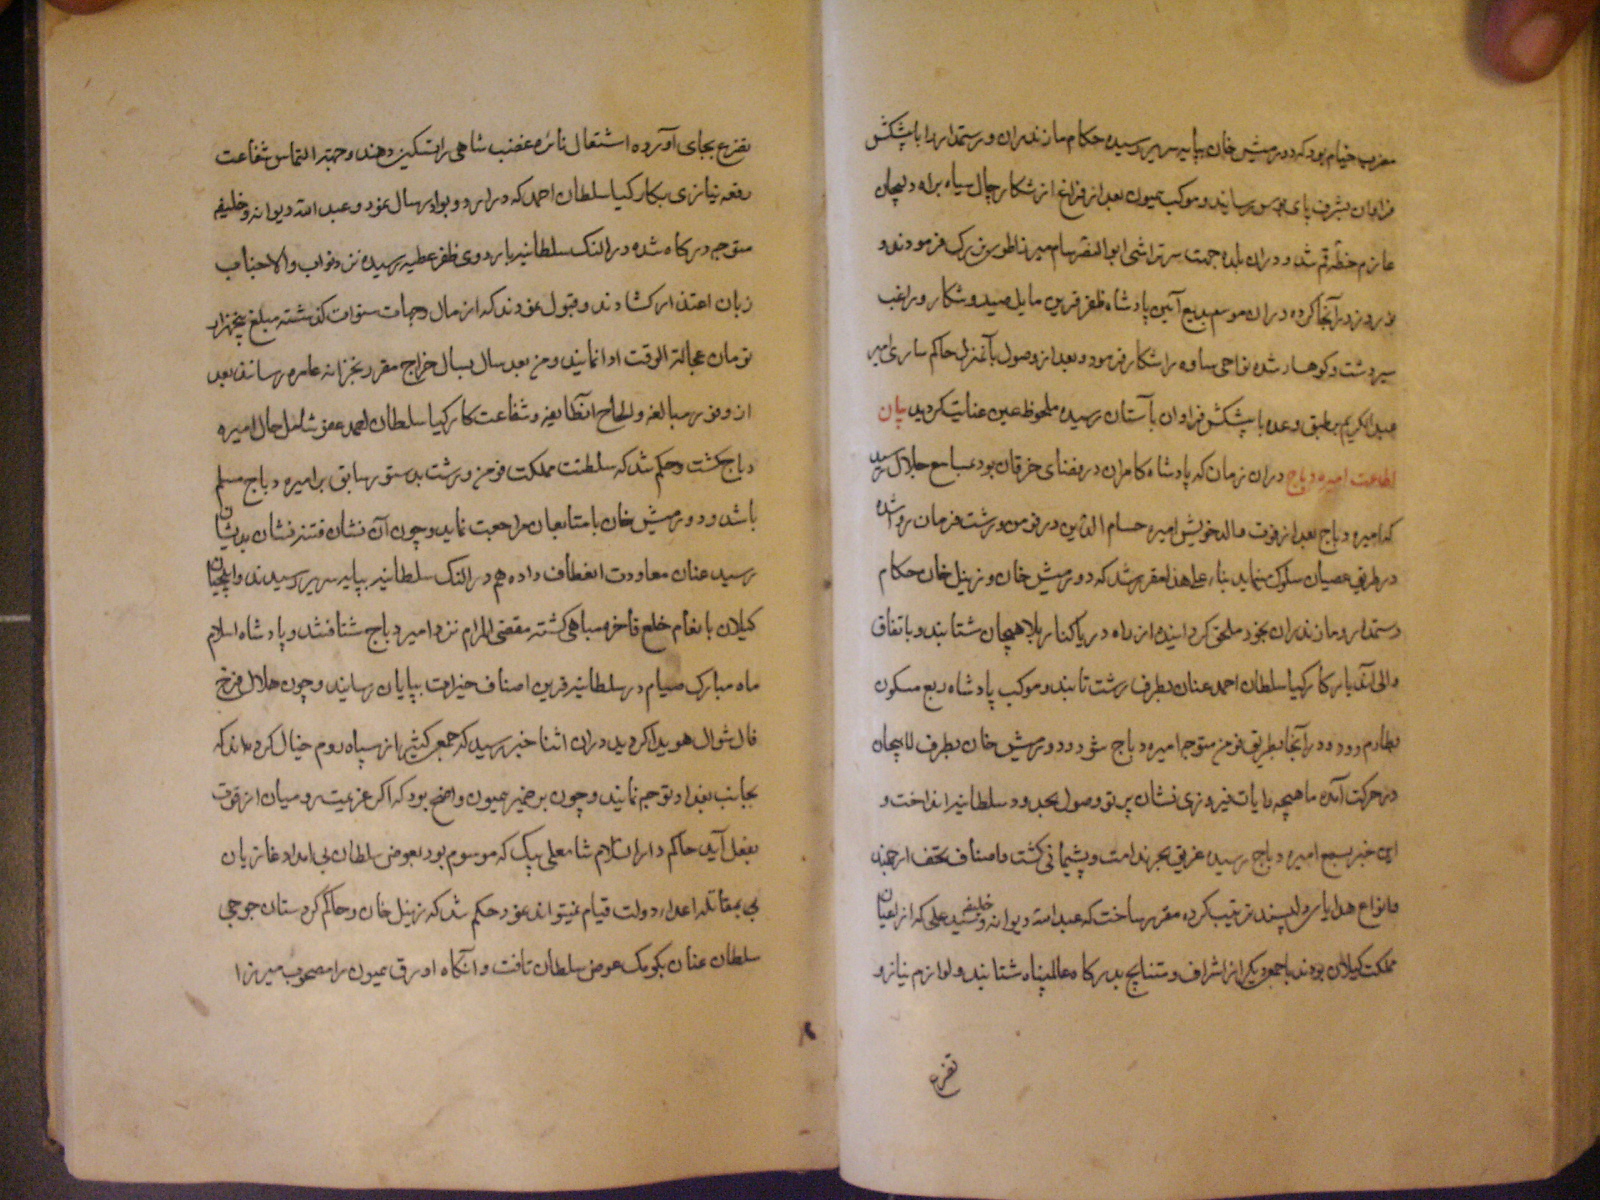 مضرب خیام بود که دورمیش خان بپایه سریر رسیده حکام مازندران و رستمدار را با پیشکش
فراوان بشرف پای بوس رسانید و موکب همیون بعد از فراغ از شکار چال سیاه براه دلیجان
عازم خطهٔ قم شد و در ان بلده جهت سرتراشی ابو النصر سام میرزا طوی بزرک فرمودند و
نوروز در آنجا کرده در ان موسم بدیع آئین پادشاه ظفر قرین مایل صید و شکار و راغب
سیر دشت و کوهسار شده نواحی ساوه را شکار فرمود و بعد از وصول بآنمنزل حاکم ساری امیر
عبد الکریم بر طبق وعده با پیشکش فراوان بآستان رسیده ملحوظ عین عنایت کردید بیان
اطاعت امیره دباج در ان زمان که پادشاه کامران در فضای خرقان بود بمسامع جلال رسید
که امیره دباج بعد از فوت والد خویش امیره حسام الدین در فومن و رشت فرمان روا شده
در طریق عصیان سلوک مینماید بناء علی هذا مقرر شد که دورمیش خان و زینل خان حکام
رستمدار و مازندران بخود ملحق کردانیده از راه دریا کنار بلاهیجان شتابند و باتفاق
والی آندیار کارکیا سلطان احمد عنان بطرف رشت تابند و موکب پادشاه ربع مسکون
بطارم رود و از آنجا بطریق فومن متوجه امیره دباج شود و دورمیش خان بطرف لاهیجان
در حرکت آمده ماهیچه رایات فیروزی نشان پرتو وصول بحدود سلطانیه انداخت و
این خبر بسمع امیره دباج رسیده غریق بحر ندامت و پشیمانی کشت و اصناف تحف ارجمند
و انواع هدایای دلپسند ترتیب کرده مقرر ساخت که عبد الله دیوانه و خلیفه سید علی که از اعیان
مملکت کیلان بودند با جمعی دیکر از اشراف و متنایج بدرکاه عالمپناه شتابند و لوازم نیاز و
تضرع
تضرع بجای آورده اشتعال نائره غضب شاهی را تسکین دهند و جهة التماس شفاعت
رقعه نیازی بکارکیا سلطان احمد که در اردو بود ارسال نمود و عبد الله دیوانه و خلیفه
متوجه درکاه شده در النک سلطانیه باردوی ظفر عطیه رسیده نزد نواب والا جناب
زبان اعتذار کشادند و قبول نمودند که از مال و جهات سنوات کذشته مبلغ پنجهزار
تومان عجالة الوقت ادا نمایند و من بعد سال بسال خراج مقرر بخزانه عامره رسانند بعد
از وفور مبالغه و الحاح آنطایفه و شفاعت کارکیا سلطان احمد عفو شامل حال امیره
دباج کشت و حکم شد که سلطنت مملکت فومن و رشت بدستور سابق بر امیره دباج مسلم
باشد و دورمیش خان با متابعان مراجعت نماید و چون آن نشان فتنه نشان بدیشان
رسید عنان معاودت انعطاف داده هم در النک سلطانیه بپایه سریر رسیدند و ایلچیان
کیلان بانعام خلع فاخره مباهی کشته مقضی المرام نزد امیر دباج شتافتند و پادشاه اسلام
ماه مبارک صیام در سلطانیه قرین اصناف خیرات بپایان رسانید و چون هلال فرخ
فال شوال هویدا کردید در ان اثنا خبر رسید که جمع کثیر از سپاه روم خیال کرده‌اند که
بجانب بغداد توجه نمایند و چون بر ضمیر همیون واضح بود که اکر عزیمت رومیان از قوت
بفعل آید حاکم دار السلام شاهعلی بیک که موسوم بود بعوض سلطان بی امداد غازیان
بمقاتله اعداء دولت قیام نمیتواند نمود حکم شد که زینل خان و حاکم کردستان جوجی
سلطان عنان بکومک عوض سلطان تافت و آنکاه اورق همیون را مصحوب میرزا